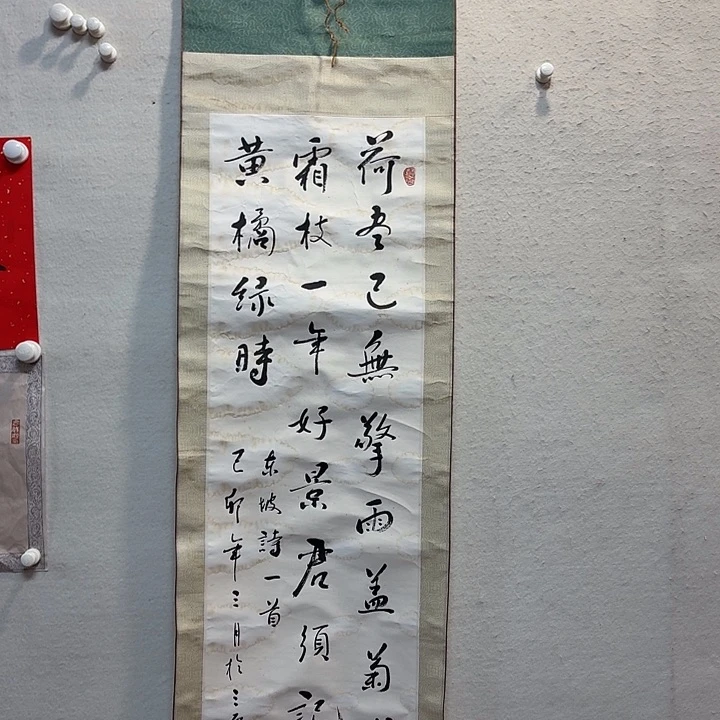 荷尽已無擎雨盖菊
霜枝一年好景君須記
黄橘緑時
东坡詩一首
己卯年三月於三